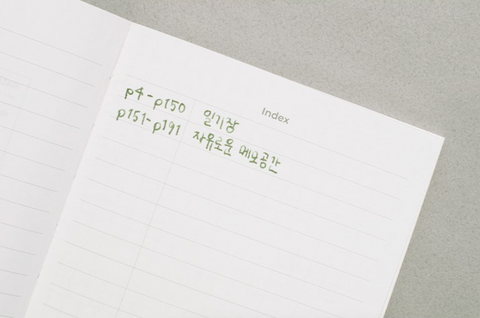 Index
p4-p150 일기장
p151-p191 자유로운 메모공간